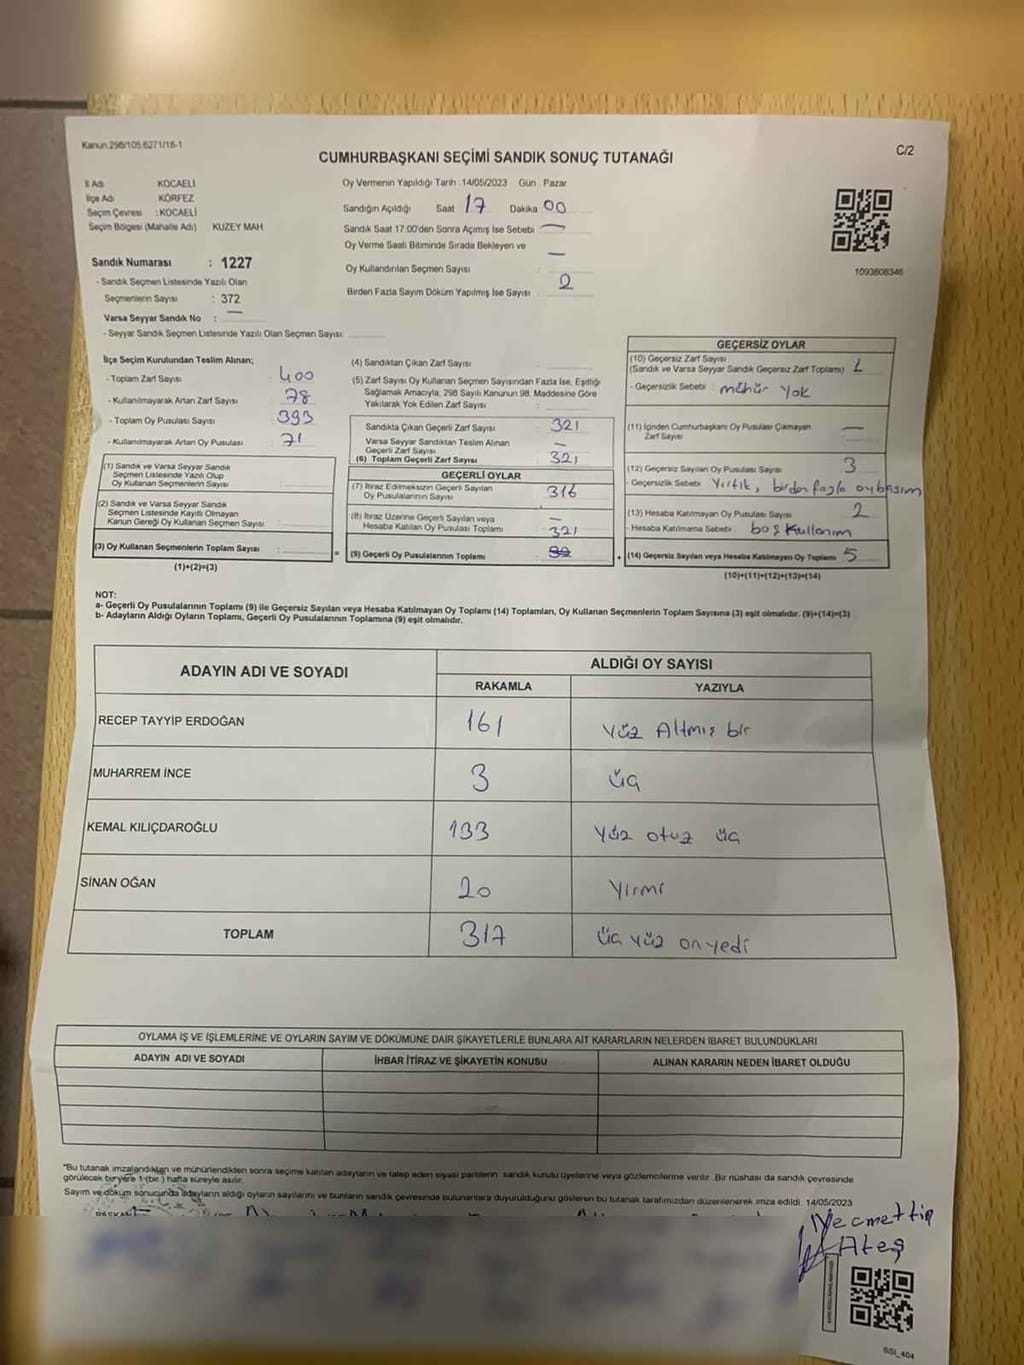 Kanun.298/105,6271/18-1
C/2
CUMHURBAŞKANI SEÇİMİ SANDIK SONUÇ TUTANAĞI
İl Adı KOCAELİ
İlçe Adı KÖRFEZ
Seçim Çevresi : KOCAELİ
Seçim Bölgesi (Mahalle Adı) KUZEY MAH
Sandık Numarası : 1227
- Sandık Seçmen Listesinde Yazılı Olan
Seçmenlerin Sayısı : 372
Varsa Seyyar Sandık No : —
- Seyyar Sandık Seçmen Listesinde Yazılı Olan Seçmen Sayısı:
Oy Vermenin Yapıldığı Tarih : 14/05/2023 Gün : Pazar
Sandığın Açıldığı Saat 17 Dakika 00
Sandık Saat 17:00'den Sonra Açımış İse Sebebi —
Oy Verme Saati Bitiminde Sırada Bekleyen ve
Oy Kullandırılan Seçmen Sayısı : —
Birden Fazla Sayım Döküm Yapılmış İse Sayısı : 2
1093608346
İlçe Seçim Kurulundan Teslim Alınan;
- Toplam Zarf Sayısı : 400
- Kullanılmayarak Artan Zarf Sayısı : 78
- Toplam Oy Pusulası Sayısı : 393
- Kullanılmayarak Artan Oy Pusulası : 71
(1) Sandık ve Varsa Seyyar Sandık
Seçmen Listesinde Yazılı Olup
Oy Kullanan Seçmenlerin Sayısı :
(2) Sandık ve Varsa Seyyar Sandık
Seçmen Listesinde Kayıtlı Olmayan
Kanun Gereği Oy Kullanan Seçmen Sayısı :
(3) Oy Kullanan Seçmenlerin Toplam Sayısı :
(1)+(2)=(3)
(4) Sandıktan Çıkan Zarf Sayısı :
(5) Zarf Sayısı Oy Kullanan Seçmen Sayısından Fazla İse, Eşitliği
Sağlamak Amacıyla, 298 Sayılı Kanunun 98. Maddesine Göre
Yakılarak Yok Edilen Zarf Sayısı :
Sandıkta Çıkan Geçerli Zarf Sayısı : 321
Varsa Seyyar Sandıktan Teslim Alınan
Geçerli Zarf Sayısı : —
(6) Toplam Geçerli Zarf Sayısı : 321
GEÇERLİ OYLAR
(7) İtiraz Edilmeksizin Geçerli Sayılan
Oy Pusulalarının Sayısı : 316
(8) İtiraz Üzerine Geçerli Sayılan veya
Hesaba Katılan Oy Pusulası Toplamı : —
321
(9) Geçerli Oy Pusulalarının Toplamı :
GEÇERSİZ OYLAR
(10) Geçersiz Zarf Sayısı
(Sandık ve Varsa Seyyar Sandık Geçersiz Zarf Toplamı) : 1
- Geçersizlik Sebebi : mühür yok
(11) İçinden Cumhurbaşkanı Oy Pusulası Çıkmayan
Zarf Sayısı : —
(12) Geçersiz Sayılan Oy Pusulası Sayısı : 3
- Geçersizlik Sebebi : Yırtık, birden fazla oy basım
(13) Hesaba Katılmayan Oy Pusulası Sayısı : 2
- Hesaba Katılmama Sebebi : boş kullanım
(14) Geçersiz Sayılan veya Hesaba Katılmayan Oy Toplamı : 5
(10)+(11)+(12)+(13)=(14)
NOT:
a- Geçerli Oy Pusulalarının Toplamı (9) ile Geçersiz Sayılan veya Hesaba Katılmayan Oy Toplamı (14) Toplamları, Oy Kullanan Seçmenlerin Toplam Sayısına (3) eşit olmalıdır. (9)+(14)=(3)
b- Adayların Aldığı Oyların Toplamı, Geçerli Oy Pusulalarının Toplamına (9) eşit olmalıdır.
ADAYIN ADI VE SOYADI ALDIĞI OY SAYISI
RAKAMLA YAZIYLA
RECEP TAYYİP ERDOĞAN 161 Yüz Altmış bir
MUHARREM İNCE 3 üç
KEMAL KILIÇDAROĞLU 133 Yüz otuz üç
SİNAN OĞAN 20 Yirmi
TOPLAM 317 üç yüz on yedi
OYLAMA İŞ VE İŞLEMLERİNE VE OYLARIN SAYIM VE DÖKÜMÜNE DAİR ŞİKAYETLERLE BUNLARA AİT KARARLARIN NELERDEN İBARET BULUNDUKLARI
ADAYIN ADI VE SOYADI İHBAR İTİRAZ VE ŞİKAYETİN KONUSU ALINAN KARARIN NEDEN İBARET OLDUĞU
"Bu tutanak imzalandıktan ve mühürlendikten sonra seçime katılan adayların ve talep eden siyasi partilerin sandık kurulu üyelerine veya gözlemcilerine verilir. Bir nüshası da sandık çevresinde
görülecek bir yere 1 (bir ) hafta süreyle asılır.
Sayım ve döküm sonucunda adayların aldığı oyların sayılarını ve bunların sandık çevresinde bulunanlara duyurulduğunu gösteren bu tutanak tarafımızdan düzenlenerek imza edildi. 14/05/2023
BAŞKAN
Necmettin
Ateş
SGI_404